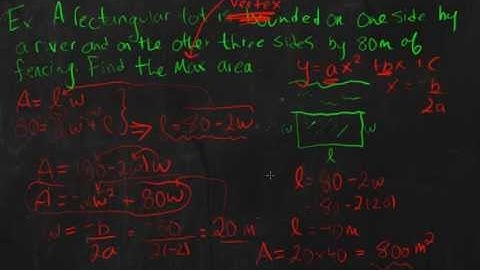 Ex A rectangular lot is bounded on one side by
a river and on the other three sides by 80m of
fencing. Find the Max area.
vertex
y = ax² + bx + c
x = -b/2a
A = l·w
80 = 2w + l ⇒ l = 80 - 2w
w w
l
A = (80 - 2w)w
A = -2w² + 80w
w = -b/2a = -80/2(-2) = 20 m
l = 80 - 2w
= 80 - 2(20)
l = 40m
A = 20 × 40 = 800 m²